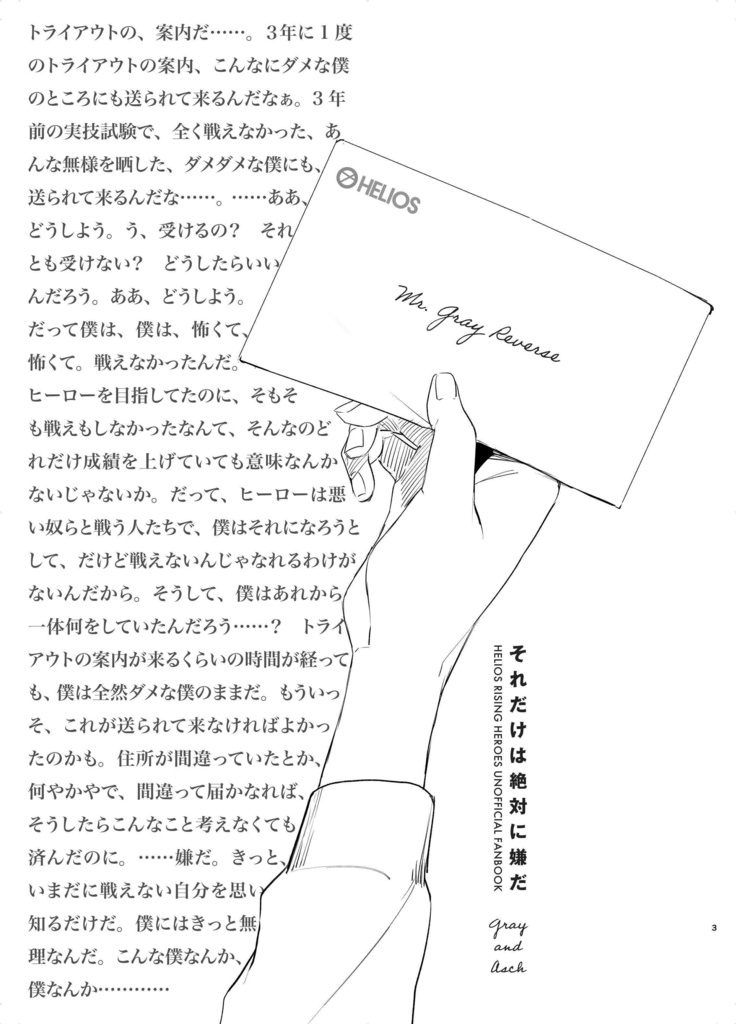 トライアウトの、案内だ……。3年に1度
のトライアウトの案内、こんなにダメな僕
のところにも送られて来るんだなぁ。3年
前の実技試験で、全く戦えなかった、あ
んな無様を晒した、ダメダメな僕にも、
送られて来るんだな……。……ああ、
どうしよう。う、受けるの？　それ
とも受けない？　どうしたらいい
んだろう。ああ、どうしよう。
だって僕は、僕は、怖くて、
怖くて。戦えなかったんだ。
ヒーローを目指してたのに、そもそ
も戦えもしなかったなんて、そんなのど
れだけ成績を上げていても意味なんか
ないじゃないか。だって、ヒーローは悪
い奴らと戦う人たちで、僕はそれになろうと
して、だけど戦えないんじゃなれるわけが
ないんだから。そうして、僕はあれから
一体何をしていたんだろう……？　トライ
アウトの案内が来るくらいの時間が経って
も、僕は全然ダメな僕のままだ。もういっ
そ、これが送られて来なければよかっ
たのかも。住所が間違っていたとか、
何やかやで、間違って届かなければ、
そうしたらこんなこと考えなくても
済んだのに。……嫌だ。きっと、
いまだに戦えない自分を思い
知るだけだ。僕にはきっと無
理なんだ。こんな僕なんか、
僕なんか…………
HELIOS
Mr. Gray Reverse
それだけは絶対に嫌だ
HELIOS RISING HEROES UNOFFICIAL FANBOOK
Gray
and
Asch
3